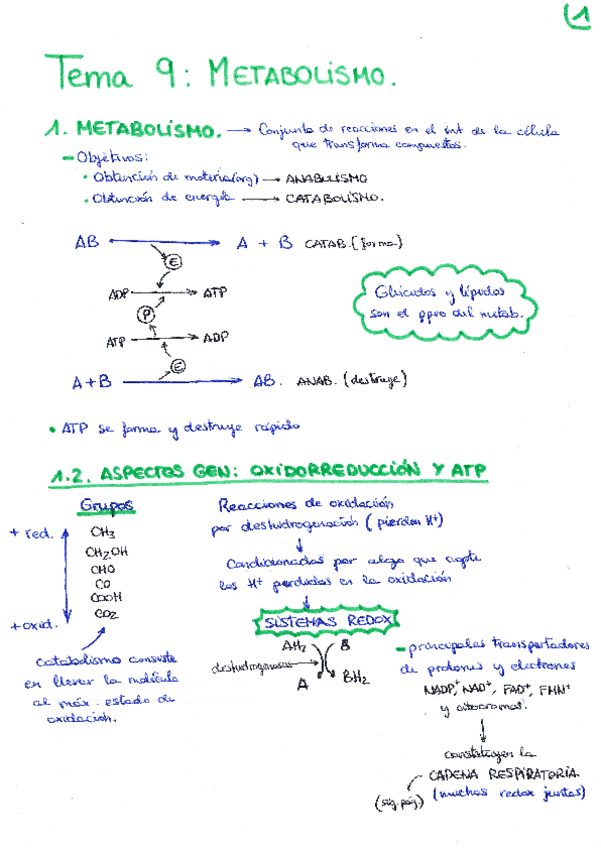 (1
Tema 9: METABOLISMO.
1. METABOLISMO. → Conjunto de reacciones en el int de la célula
que transforma compuestos.
- Objetivos:
• Obtención de materia(org) → ANABOLISMO
• Obtención de energía → CATABOLISMO.
AB → A + B CATAB. (forma)
E
ADP → ATP
P
ATP → ADP
E
A+B → AB. ANAB. (destruye)
Glúcidos y lípidos
son el ppio del metab.
• ATP se forma y destruye rápido
1.2. ASPECTOS GEN: OXIDORREDUCCIÓN Y ATP
Grupos
+ red.
CH3
CH2OH
CHO
CO
COOH
CO2
+ oxid.
catabolismo consiste
en llevar la molécula
al máx. estado de
oxidación.
Reacciones de oxidación
por deshidrogenación (pierden H+)
↓
Condicionadas por algo que capte
los H+ perdidos en la oxidación
↓
SISTEMAS REDOX
AH2 B
deshidrogenasas
A BH2
- principales transportadores
de protones y electrones
NADP+, NAD+, FAD+, FMN+
y citocromos.
↓
constituyen la
CADENA RESPIRATORIA
(sig.pág) (muchos redox juntos)